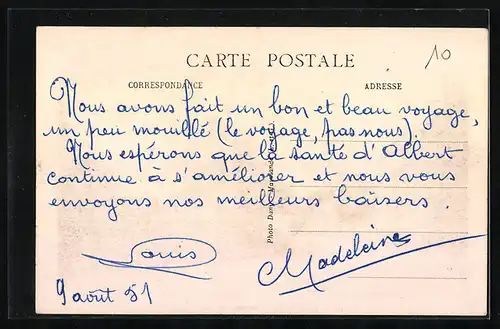 CARTE POSTALE
10
CORRESPONDANCE
ADRESSE
Nous avons fait un bon et beau voyage,
un peu mouillé (le voyage, pas nous).
Nous espérons que la santé d'Albert
continue à s'améliorer et nous vous
envoyons nos meilleurs baisers.
Louis
Madeleine
9 août 51
Photo